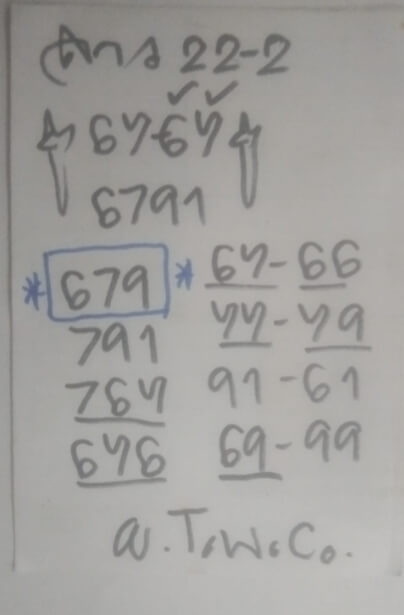 ลาว 22-2
67-67
6791
*679* 67-66
791 77-79
767 91-61
676 69-99
a.T.W.Co.